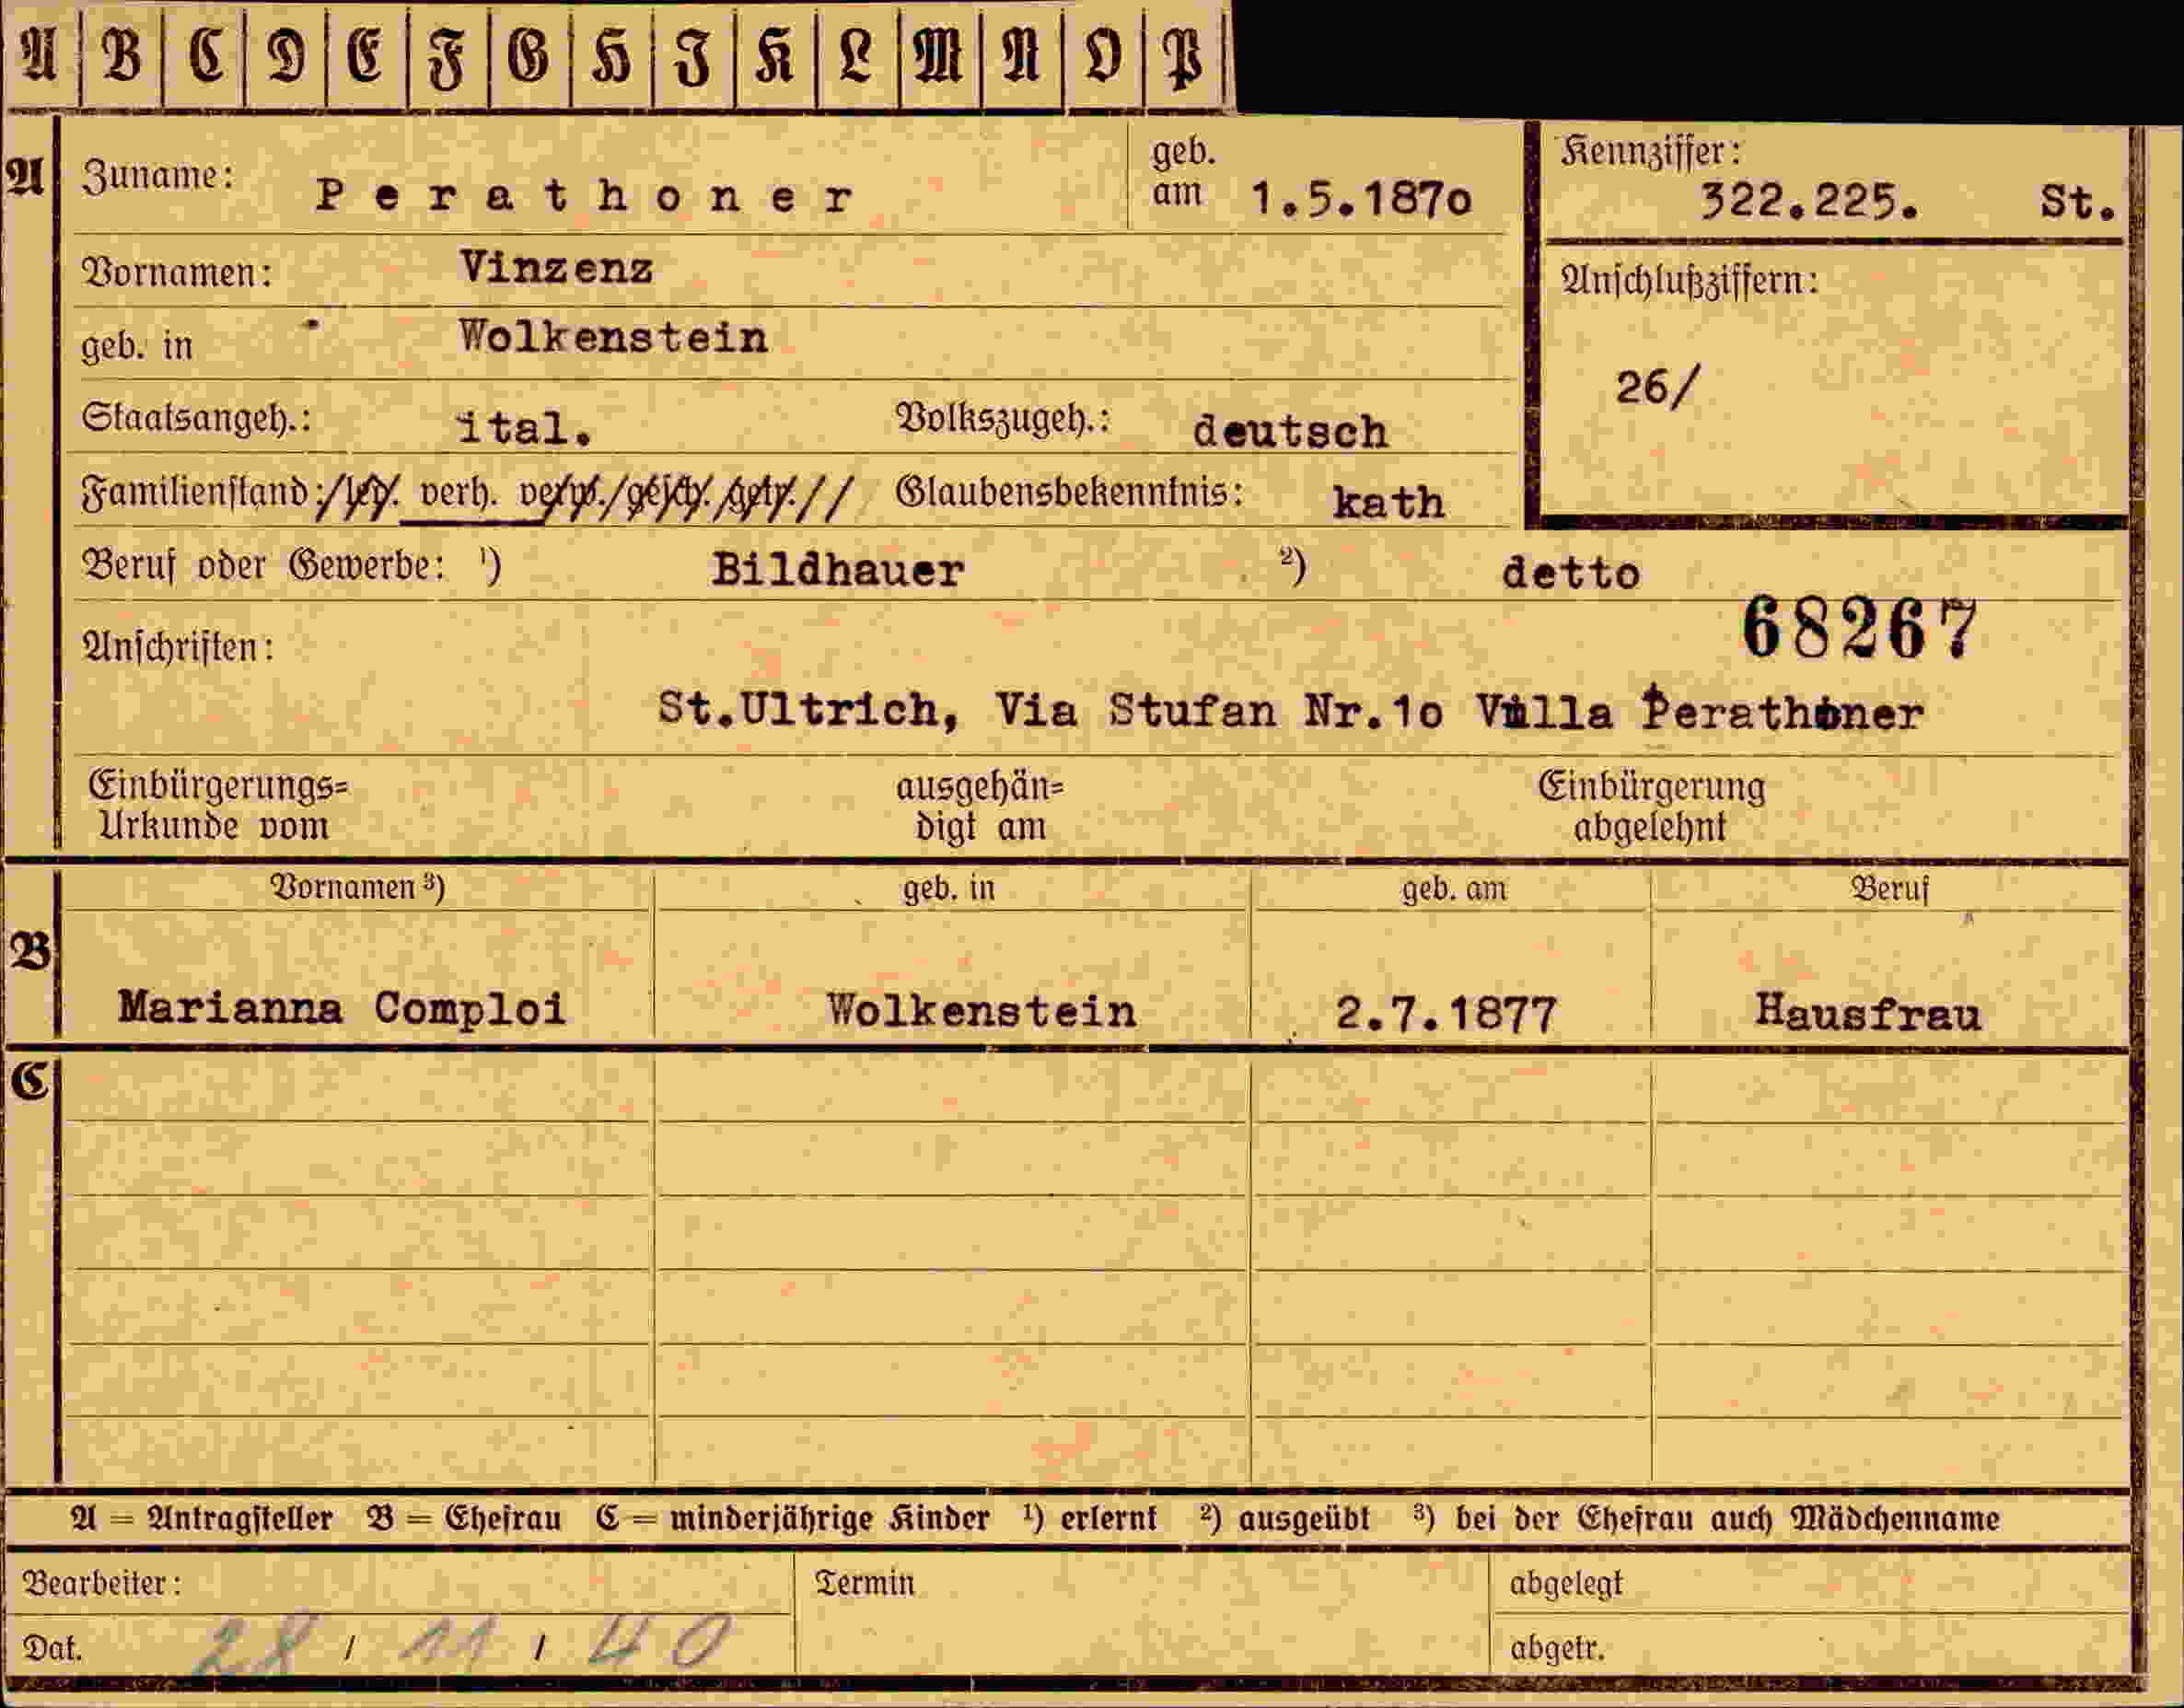 A B C D E F G H J K L M N O P
A Zuname: Perathoner geb. am 1.5.1870 Kennziffer: 322.225. St.
Vornamen: Vinzenz Anschlußziffern:
geb. in Wolkenstein 26/
Staatsangeh.: ital. Volkszugeh.: deutsch
Familienstand: led. verh. verw. gesch. getr. Glaubensbekenntnis: kath
Beruf oder Gewerbe: ¹) Bildhauer ²) detto
68267
Anschriften:
St.Ultrich, Via Stufan Nr.10 Villa Perathoner
Einbürgerungs= ausgehän= Einbürgerung
Urkunde vom digt am abgelehnt
Vornamen ³) geb. in geb. am Beruf
B
Marianna Comploi Wolkenstein 2.7.1877 Hausfrau
C
A = Antragsteller B = Ehefrau C = minderjährige Kinder ¹) erlernt ²) ausgeübt ³) bei der Ehefrau auch Mädchenname
Bearbeiter: Termin abgelegt
Dat. 28 / 11 / 40 abgetr.